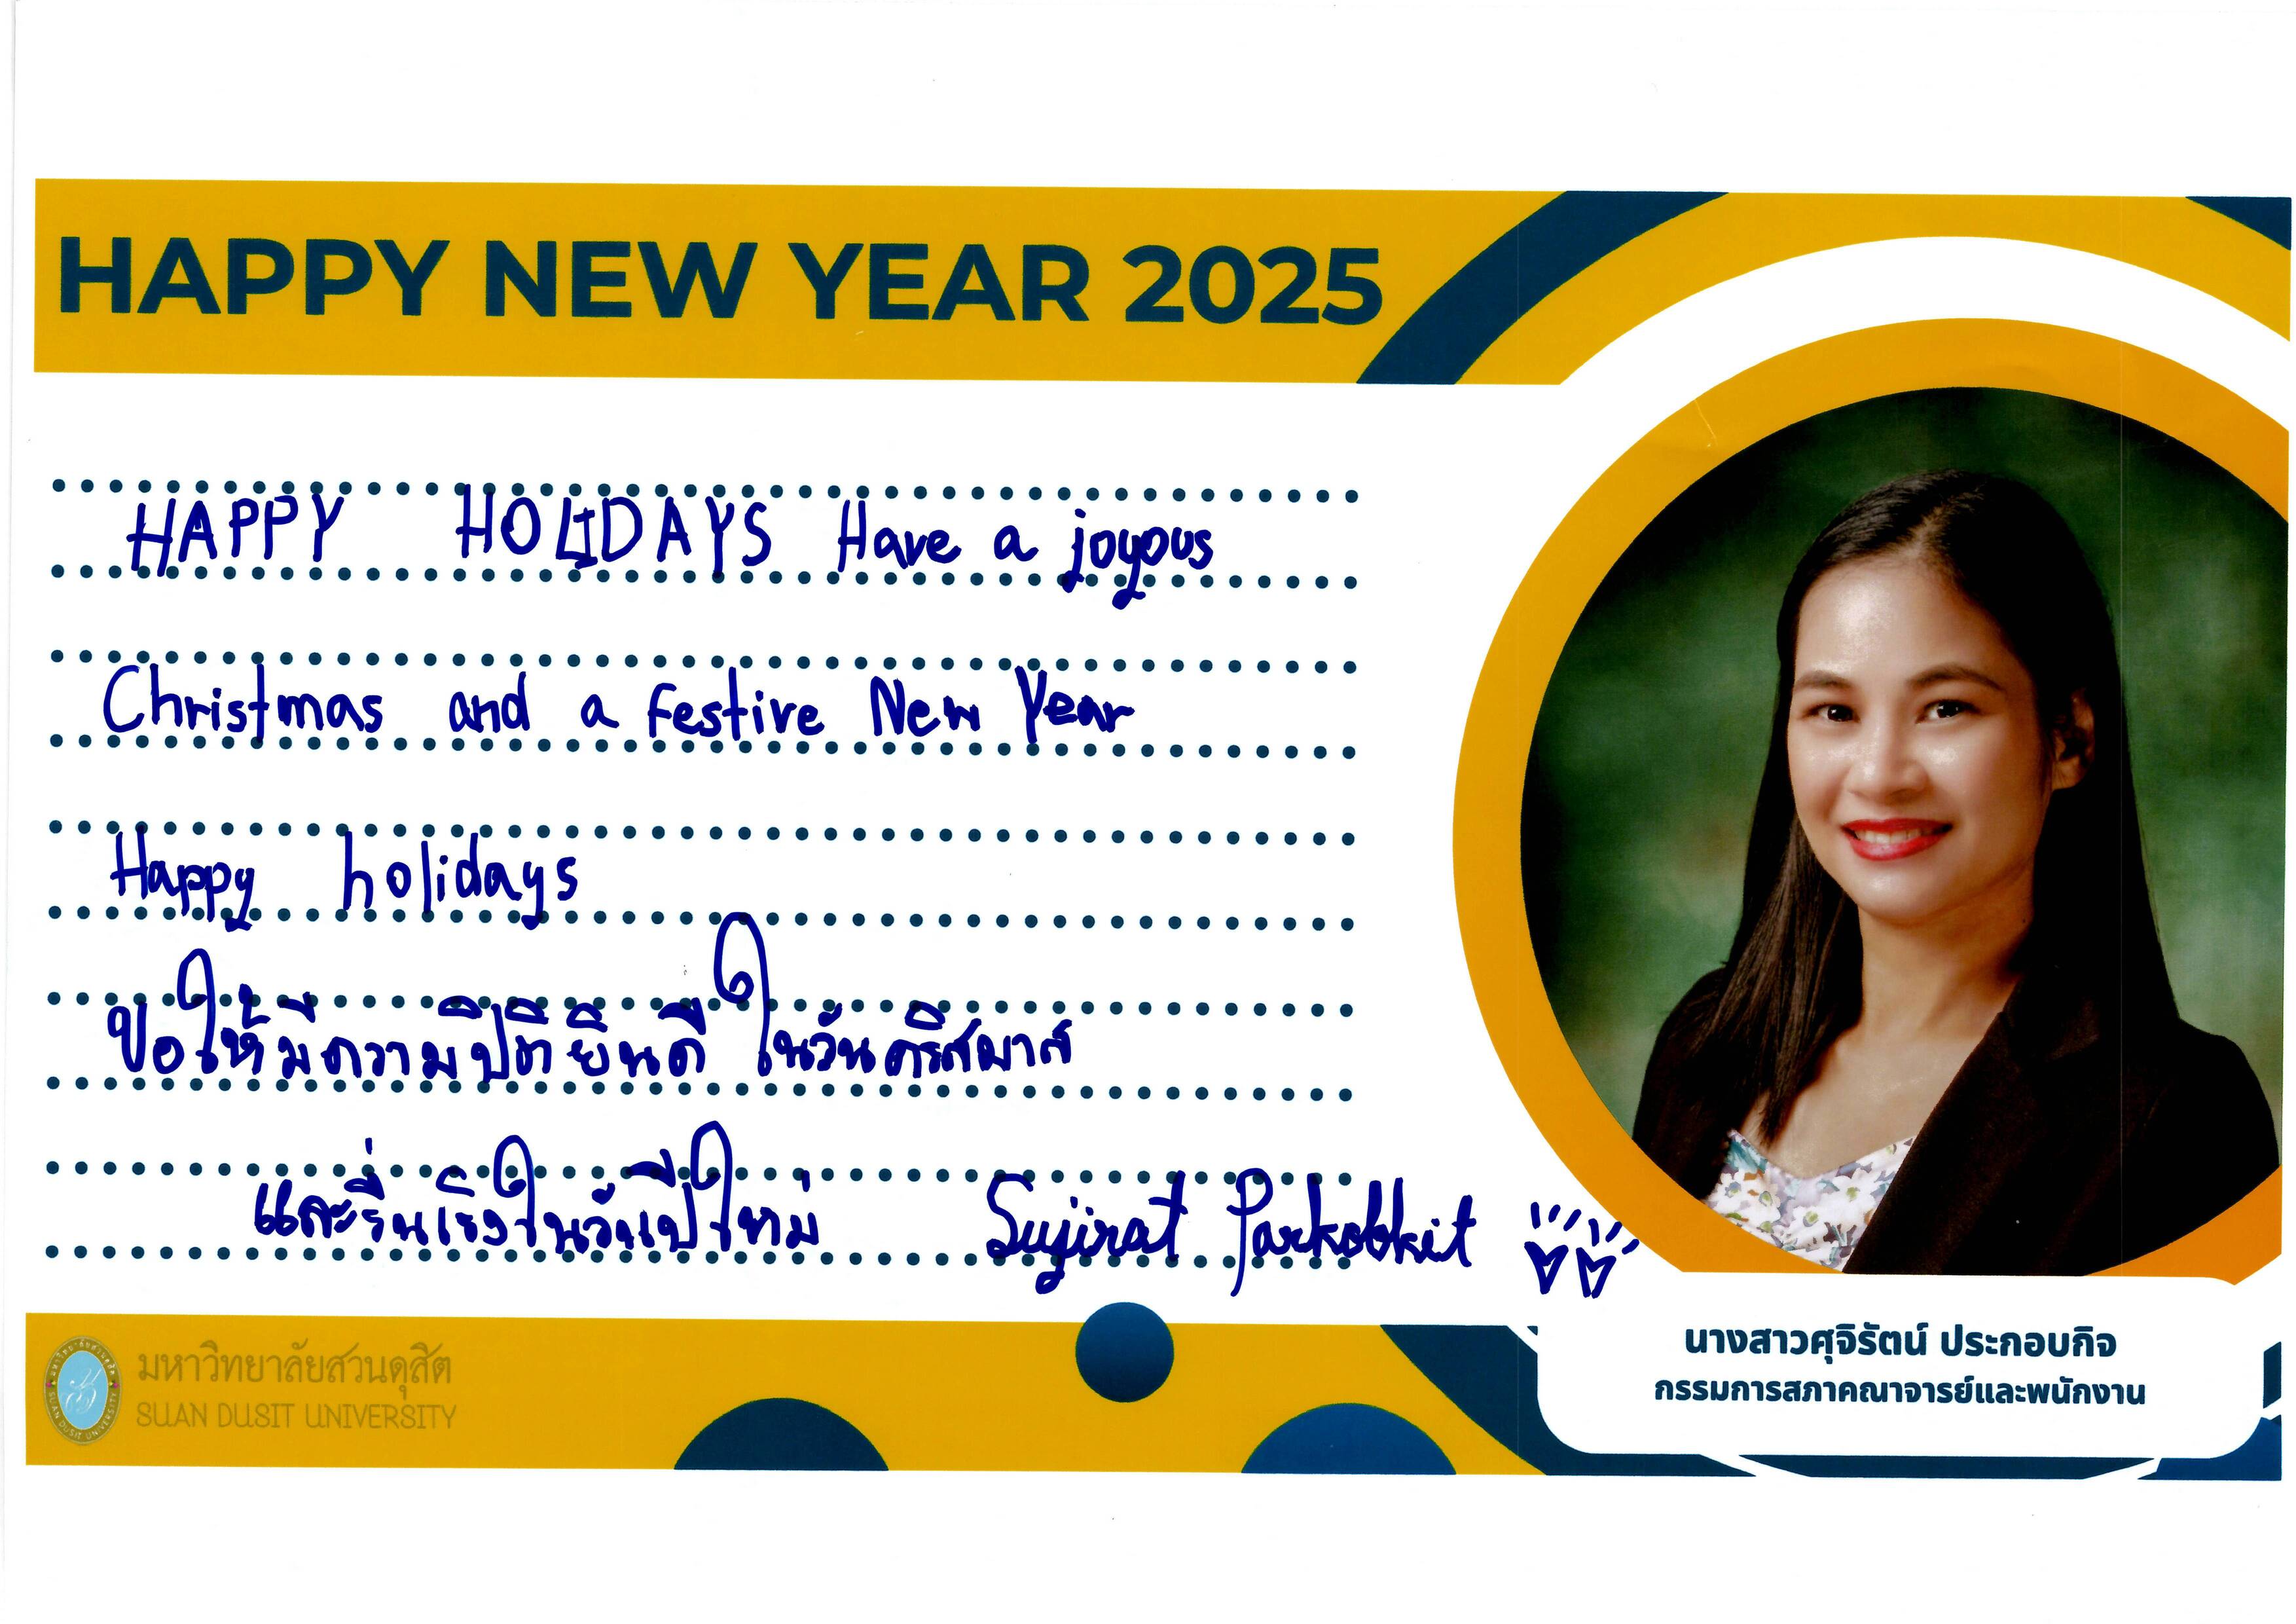 HAPPY NEW YEAR 2025
HAPPY HOLIDAYS Have a joyous
Christmas and a Festive New Year
Happy holidays
ขอให้มีความปิติยินดี ในวันคริสมาส
และรื่นเริงในวันปีใหม่ Sujirat Parkobkit
มหาวิทยาลัยสวนดุสิต
SUAN DUSIT UNIVERSITY
นางสาวศุจิรัตน์ ประกอบกิจ
กรรมการสภาคณาจารย์และพนักงาน